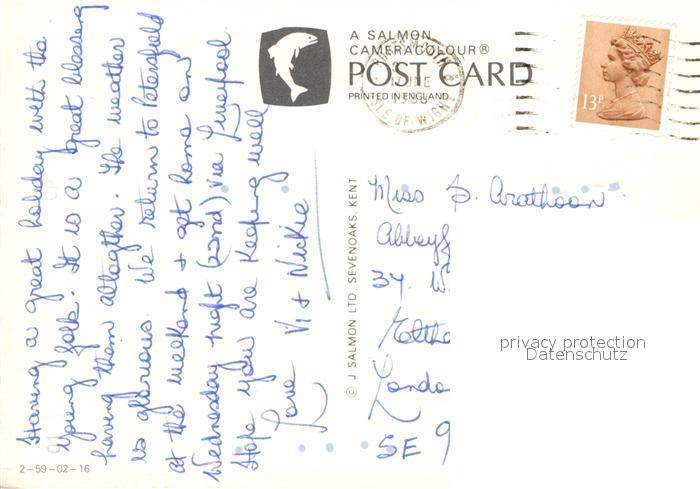 Having a great holiday with the
young folk. It is a great blessing
having them altogther. The weather
is glorious. We return to Petersfield
at the weekend & get home on
Wednesday night (22nd) via Liverpool
Hope you are keeping well
Love Vi & Nickie
2-59-02-16
A SALMON
CAMERACOLOUR®
POST CARD
PRINTED IN ENGLAND
© J SALMON LTD. SEVENOAKS. KENT
JUNE
ISLE OF WIGHT
13P
Miss D. Arathoon
Abbeyf
34. W
Eltha
Londo
SE 9
privacy protection
Datenschutz